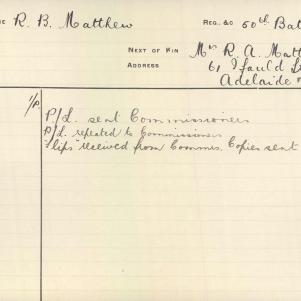 R. B. Matthew
REG. &C 50th Bat
NEXT OF KIN Mrs R. A. Matt
ADDRESS 61 Ifould St
Adelaide
P/L. sent Commissioners
P/L. repeated to Commissioners
"Slips" received from Commrs. Copies sent